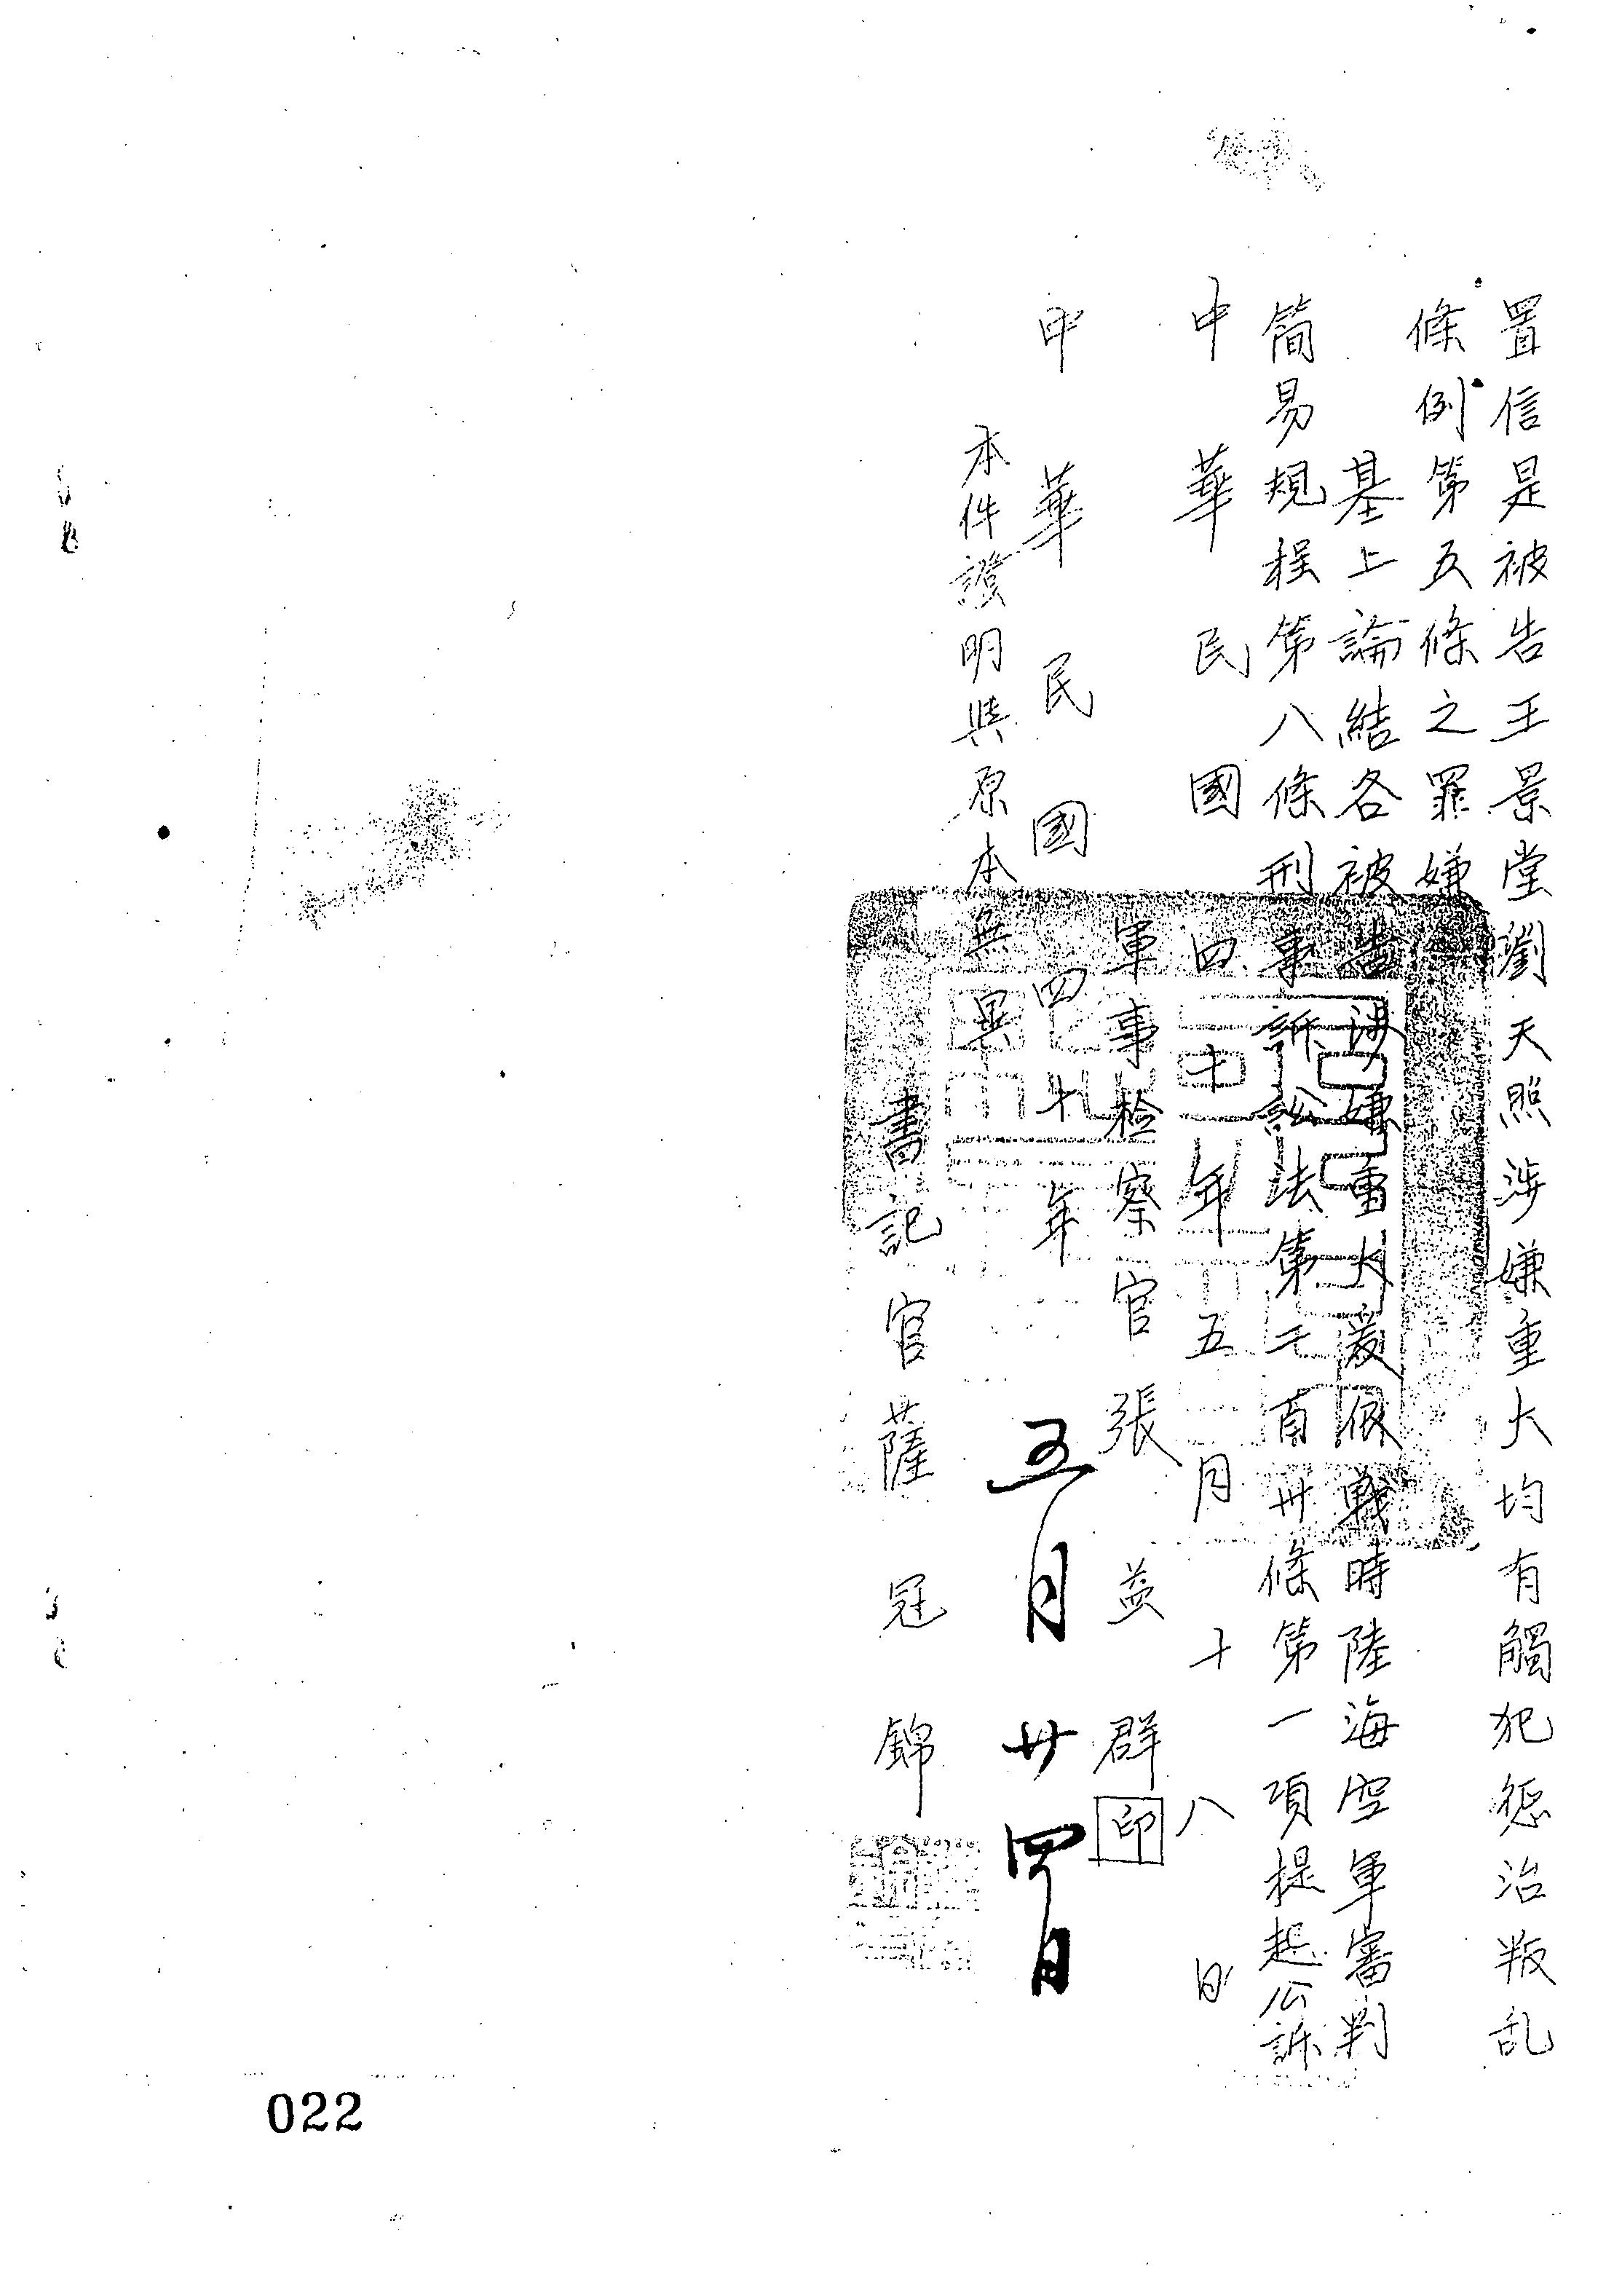 置信是被告王景堂瀏天照涉嫌重大均有觸犯惩治叛乱
條例第五條之罪嫌
基上論結各被告涉嫌重大爰依戰時陸海空軍審判
簡易規程第八條刑事訴訟法第二百卅條第一項提起公訴
中華民國四十年五月十八日
軍事检察官張益群印
中華民國四十年五月廿四日
本件證明與原本無異
書記官薩冠錦
022